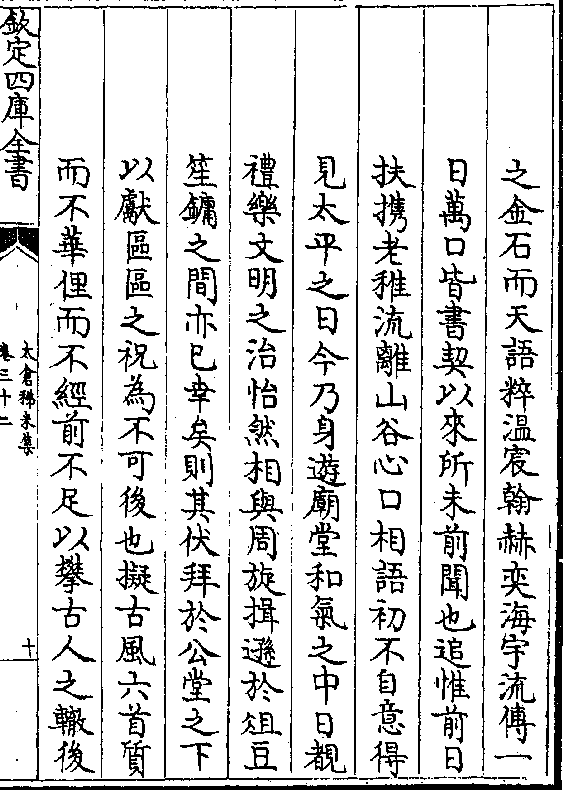 之金石而天語粹溫宸翰赫奕海宇流傳一
日萬口皆書契以來所未前聞也追惟前日
扶攜老稚流離山谷心口相語初不自意得
見太平之日今乃身遊廟堂和氣之中日覩
禮樂文明之治怡然相與周旋揖遜於俎豆
笙鏞之間亦已幸矣則其伏拜於公堂之下
以獻區區之祝為不可後也擬古風六首質
而不華俚而不經前不足以攀古人之轍後
欽定四庫全書
太倉稊米集
卷三十二
十